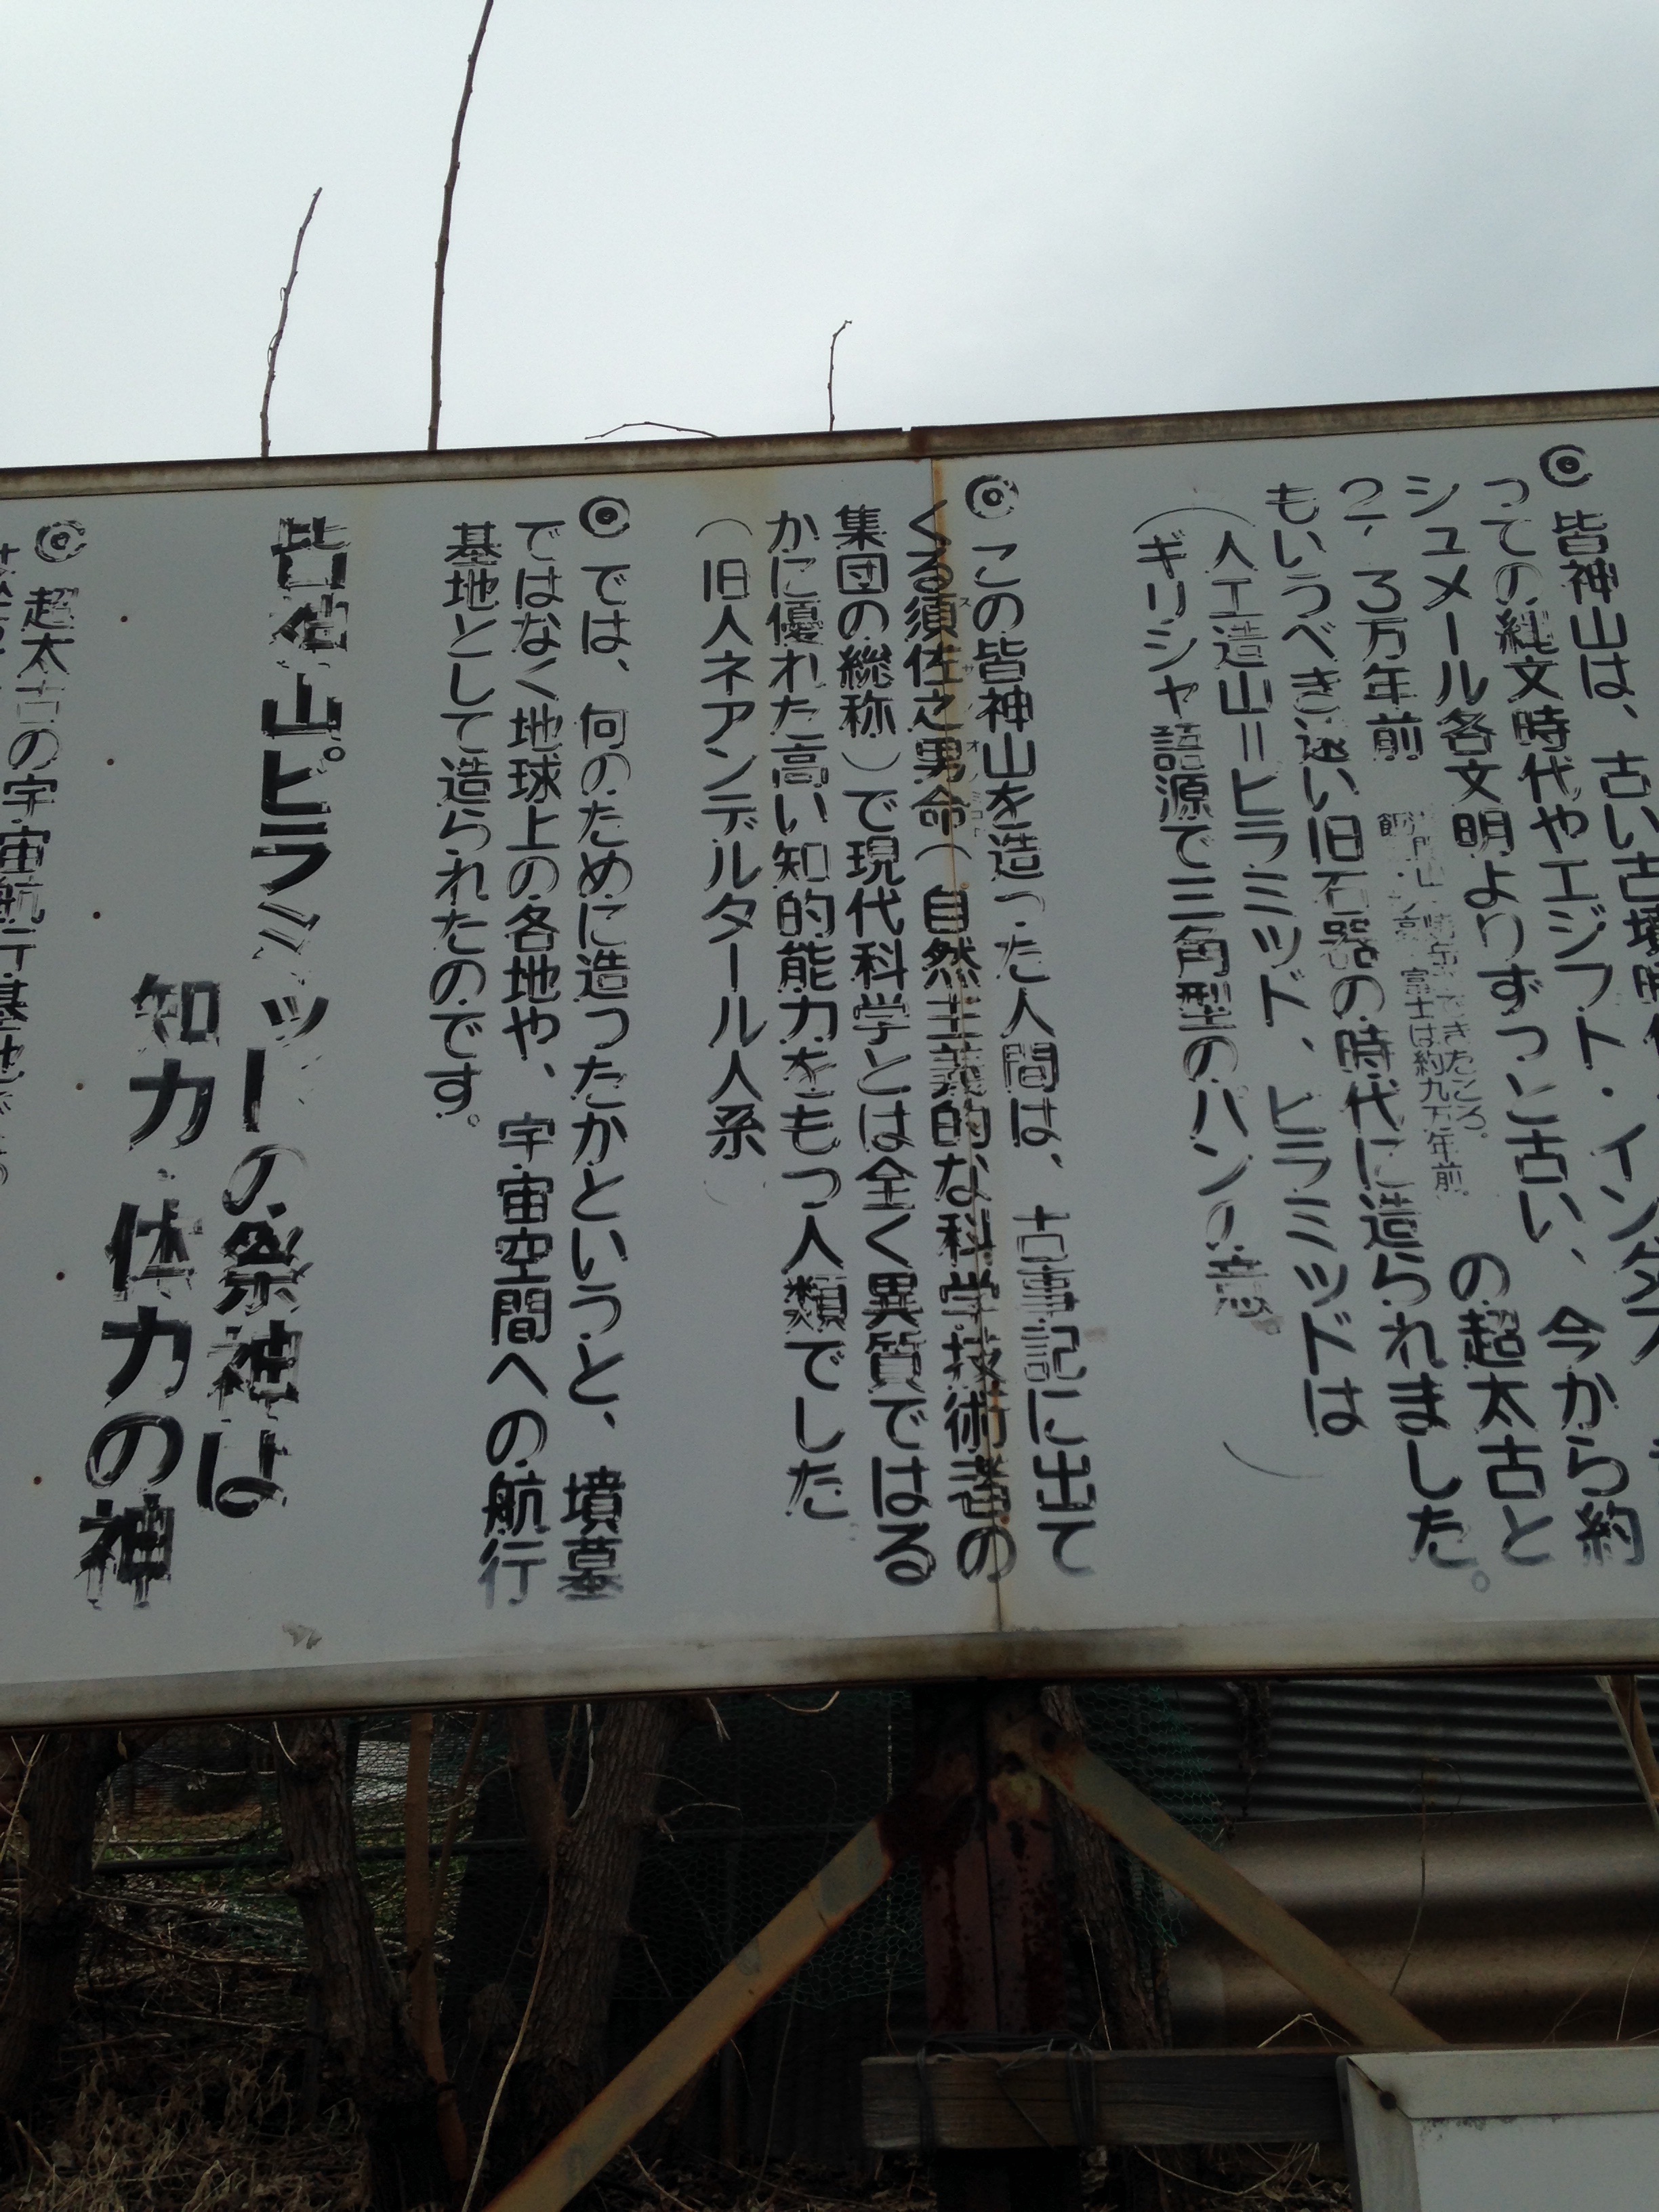 ◎皆神山は、古い古墳時
っての縄文時代やエジプト・イン
シュメール各文明よりずっと古い、今から約
2、3万年前
できたころ。
富士は約九万年前
の超太古と
もいうべき遠い旧石器の時代に造られました。
(人工造山=ピラミッド、ピラミッドは
ギリシャ語源で三角型のパンの意)
◎この皆神山を造った人間は、古事記に出て
くる須佐之男命(自然主義的な科学技術者の
集団の総称)で現代科学とは全く異質ではる
かに優れた高い知的能力をもつ人類でした
(旧人ネアンデルタール人系)
◎では、何のために造ったかというと、墳墓
ではなく地球上の各地や、宇宙空間への航行
基地として造られたのです。
皆神山ピラミッドの祭神は
知力・体力の神
◎超太古の宇宙航行基地